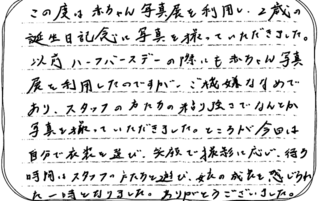 この度は赤ちゃん写真展を利用し、2歳の
誕生日記念に写真を撮っていただきました。
以前ハーフバースデーの際にも赤ちゃん写真
展を利用したのですが、ご機嫌ななめで
あり、スタッフの方たちの粘り強さでなんとか
写真を撮っていただきました。ところが今回は
自分で衣装を選び、笑顔で撮影に応じ、待ち
時間はスタッフの方たちと遊び、娘の成長を感じられ
た一時となりました。ありがとうございました。